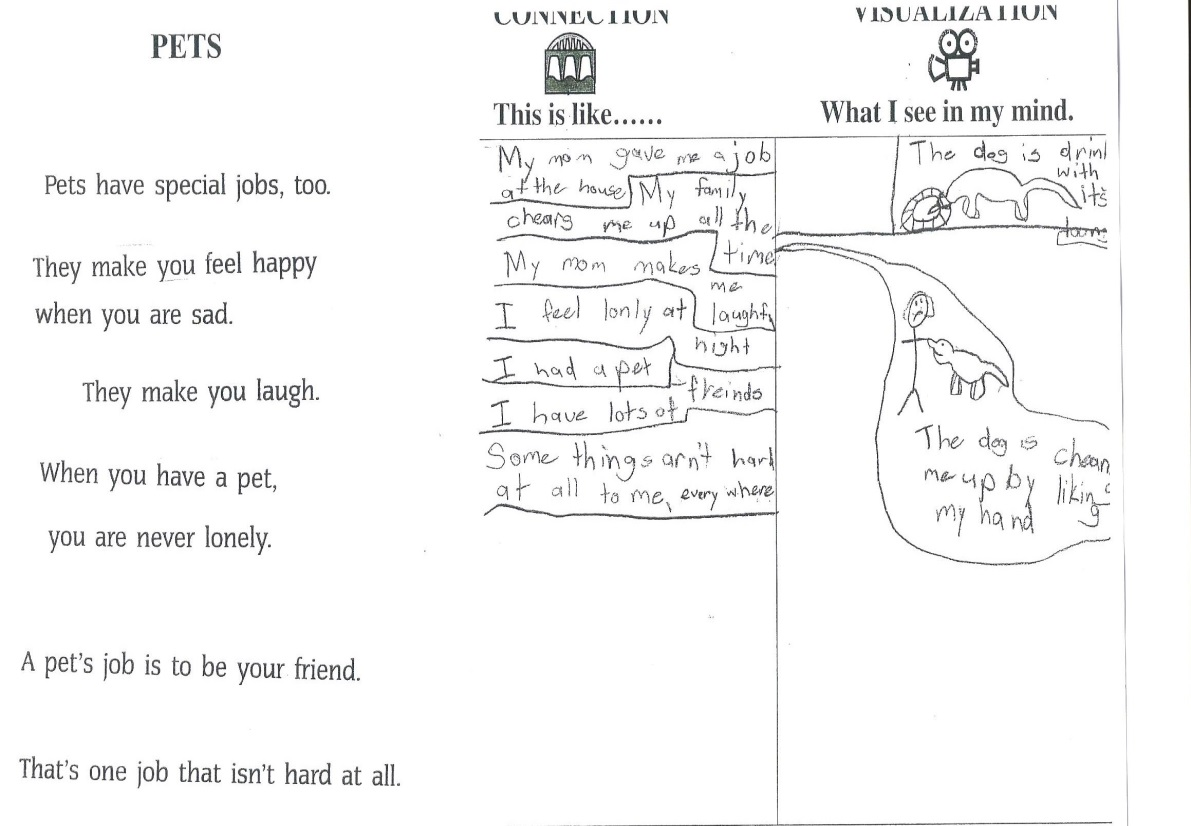 PETS
Pets have special jobs, too.
They make you feel happy
when you are sad.
They make you laugh.
When you have a pet,
you are never lonely.
A pet's job is to be your friend.
That's one job that isn't hard at all.
CONNECTION
This is like......
My mom gave me a job
at the house
My family
chears me up all the
time
My mom makes
me
laught
I feel lonly at
night
I had a pet
I have lots of
freinds
Some things arn't hard
at all to me, every where
VISUALIZATION
What I see in my mind.
The dog is drin
with
its
The dog is chean
me up by likin
g
my hand